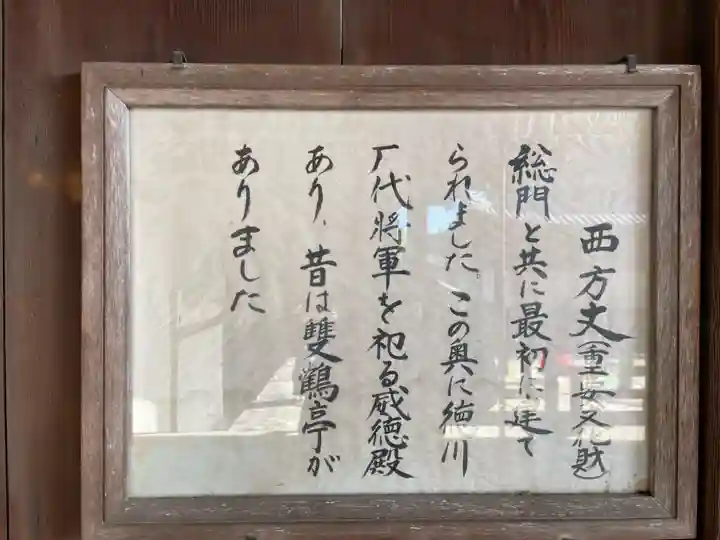 西方丈(重要文化財)
総門と共に最初に建て
られました この奥に徳川
厂代将軍を祀る威徳殿
あり、昔は雙鶴亭が
ありました